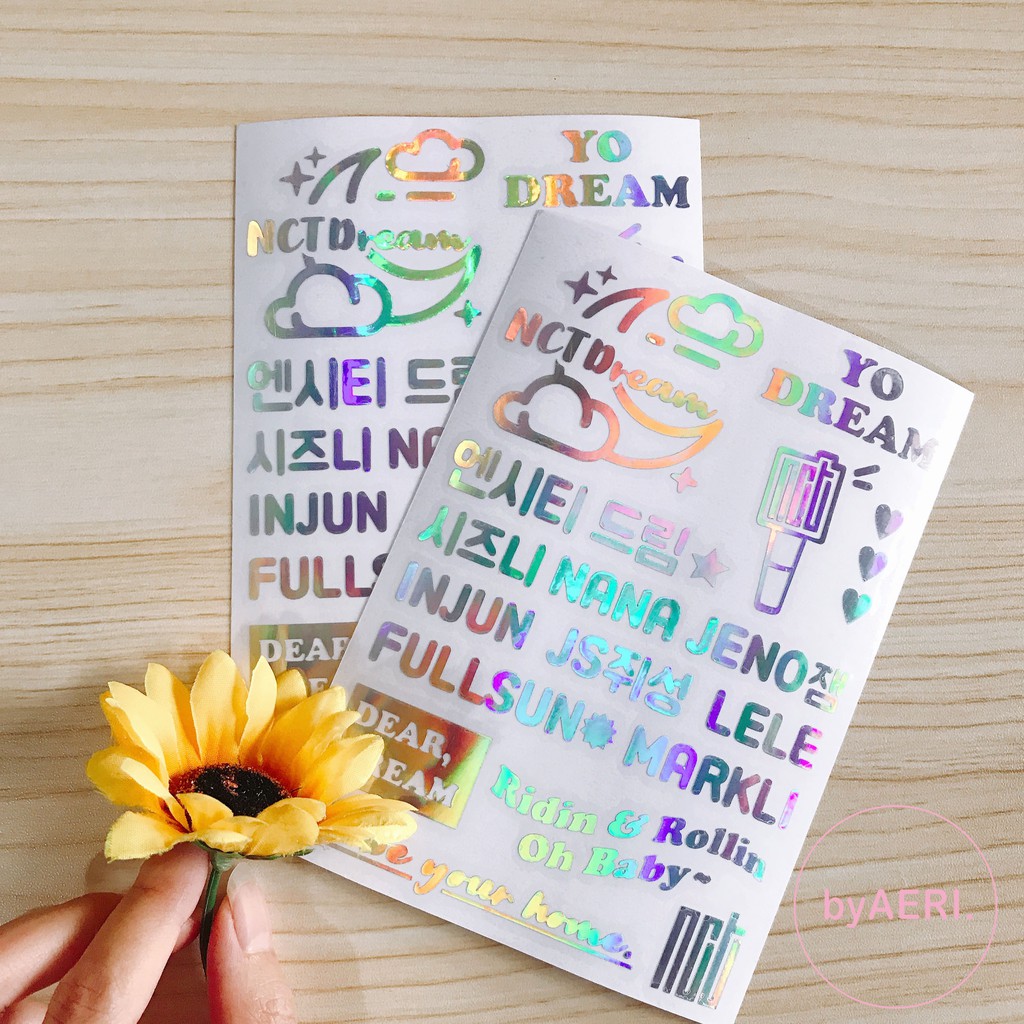 YO
DREAM
NCTDream
엔시티 드림
시즈니 NA
INJUN
FULLS
DEAR
YO
DREAM
NCTDream
nct
엔시티 드림
시즈니 NANA JENO잼
INJUN JS쥐성 LELE
FULLSUN MARKLI
DEAR,
DREAM
Ridin & Rollin
Oh Baby~
your home.
nct
byAERI